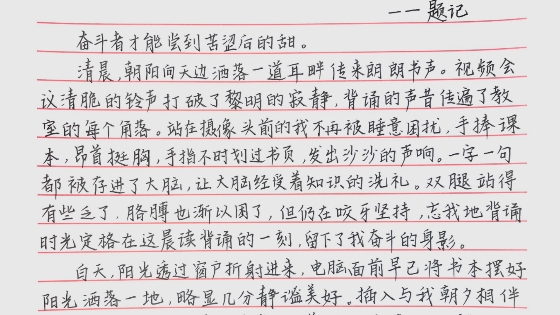 ——题记
奋斗者才能尝到苦涩后的甜。
清晨,朝阳向天边洒落一道耳畔传来朗朗书声。视频会
议清脆的铃声打破了黎明的寂静,背诵的声音传遍了教
室的每个角落。站在摄像头前的我不再被睡意困扰,手捧课
本,昂首挺胸,手指不时划过书页,发出沙沙的声响。一字一句
都被存进了大脑,让大脑经受着知识的洗礼。双腿站得
有些乏了,胳膊也渐以困了,但仍在咬牙坚持,忘我地背诵
时光定格在这晨读背诵的一刻,留下了我奋斗的身影。
白天,阳光透过窗户折射进来,电脑面前早已将书本摆好
阳光洒落一地,略显几分静谧美好。插入与我朝夕相伴